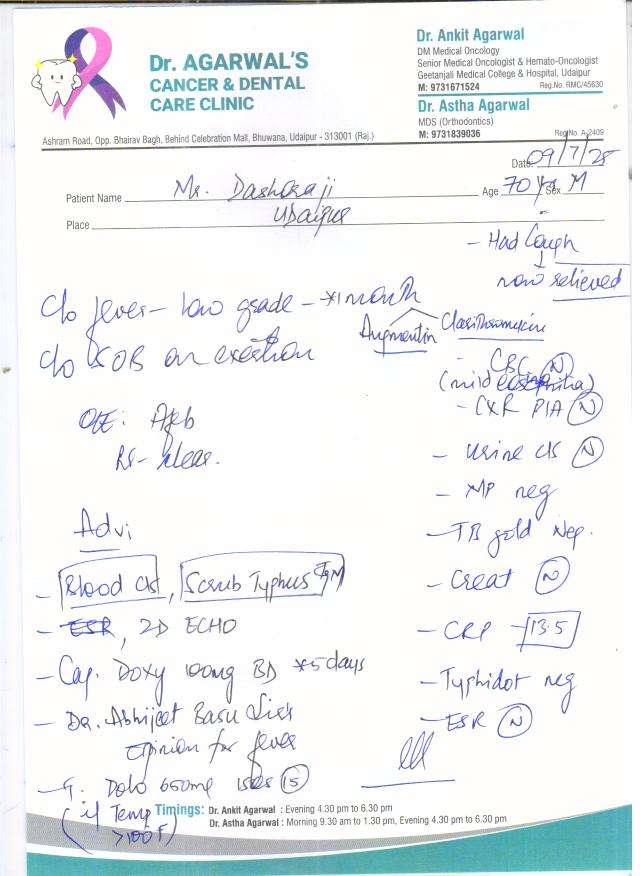 Dr. AGARWAL'S
CANCER & DENTAL
CARE CLINIC
Dr. Ankit Agarwal
DM Medical Oncology
Senior Medical Oncologist & Hemato-Oncologist
Geetanjali Medical College & Hospital, Udaipur
M: 9731671524 Reg.No. RMC/45630
Dr. Astha Agarwal
MDS (Orthodontics)
M: 9731839036 Reg.No. A-2409
Ashram Road, Opp. Bhairav Bagh, Behind Celebration Mall, Bhuwana, Udaipur - 313001 (Raj.)
Date 09/7/25
Patient Name Mr. Age 70 yrs Sex M
Place Udaipur
- Had Cough
↓
now relieved
C/o fever - low grade - x1 month
Augmentin Clarithromycin
C/o SOB on exertion
- CBC (N)
(mild eosinophilia)
- CXR P/A (N)
O/E: Afeb
RS - clear.
- Urine C/S (N)
- MP neg
- TB gold Neg.
- Creat (N)
- CRP - 13.5
- Typhidot neg
- ESR (N)
Advi
- Blood C/S, Scrub Typhus IgM
- ESR, 2D ECHO
- Cap. Doxy 100mg BD x5days
- Dr. Abhijeet Basu Sir's
opinion for fever
- T. Dolo 650mg 1 SOS (15)
(if Temp
>100F)
Timings: Dr. Ankit Agarwal : Evening 4.30 pm to 6.30 pm
Dr. Astha Agarwal : Morning 9.30 am to 1.30 pm, Evening 4.30 pm to 6.30 pm